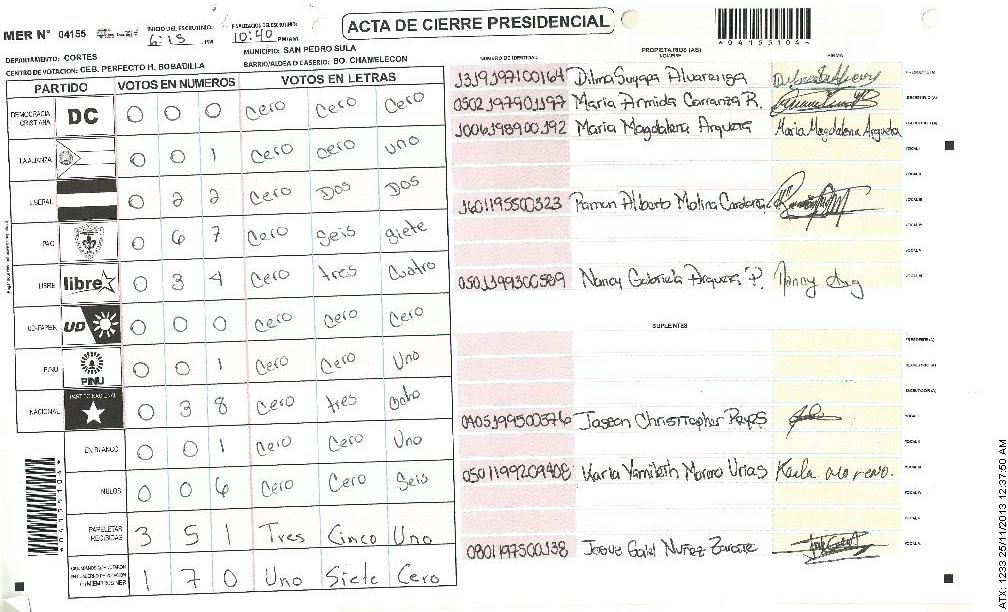 ACTA DE CIERRE PRESIDENCIAL
MER N° 04155
INICIO DEL ESCRUTINIO: 6:15 PM
FINALIZACIÓN DEL ESCRUTINIO: 10:40 PM/AM
*04155104*
DEPARTAMENTO: CORTES
MUNICIPIO: SAN PEDRO SULA
CENTRO DE VOTACION: CEB. PERFECTO H. BOBADILLA
BARRIO/ALDEA O CASERIO: BO. CHAMELECON
PARTIDO VOTOS EN NUMEROS VOTOS EN LETRAS
DEMOCRACIA CRISTIANA DC 0 0 0 Cero Cero Cero
LA ALIANZA 0 0 1 Cero cero uno
LIBERAL 0 2 2 Cero Dos Dos
PAC 0 6 7 Cero Seis siete
LIBRE libre 0 3 4 Cero tres Cuatro
UD-FAPER UD 0 0 0 Cero Cero Cero
PINU PINU 0 0 1 Cero Cero Uno
NACIONAL PARTIDO NACIONAL 0 3 8 Cero tres Ocho
EN BLANCO 0 0 1 Cero Cero Uno
NULOS 0 0 6 Cero Cero Seis
PAPELETAS RECIBIDAS 3 5 1 Tres Cinco Uno
1 7 0 Uno Siete Cero
PROPIETARIOS (AS)
NUMERO DE IDENTIDAD NOMBRE FIRMA
1319197100164 Dilma Suyapa Alvarenga PRESIDENTE (A)
0502197901197 Maria Armida Carranza R. SECRETARIO (A)
1006198900192 Maria Magdalena Argueta Maria Magdalena Argueta ESCRUTADOR (A)
VOCAL I
VOCAL II
1601195500323 Ramon Alberto Molina Cardona VOCAL III
VOCAL IV
VOCAL V
0501199300589 Nancy Gabriela Argueta P. Nancy Arg VOCAL VI
SUPLENTES
PRESIDENTE (A)
SECRETARIO (A)
ESCRUTADOR (A)
0405199500376 Jasson Christopher Reyes VOCAL I
VOCAL II
0501199209408 Karla Yamileth Moreno Urias Karla moreno. VOCAL III
VOCAL IV
VOCAL V
0801197500138 Josue Galel Nuñez Zarate VOCAL VI
*04155104*
ATX: 1233 25/11/2013 12:37:50 AM